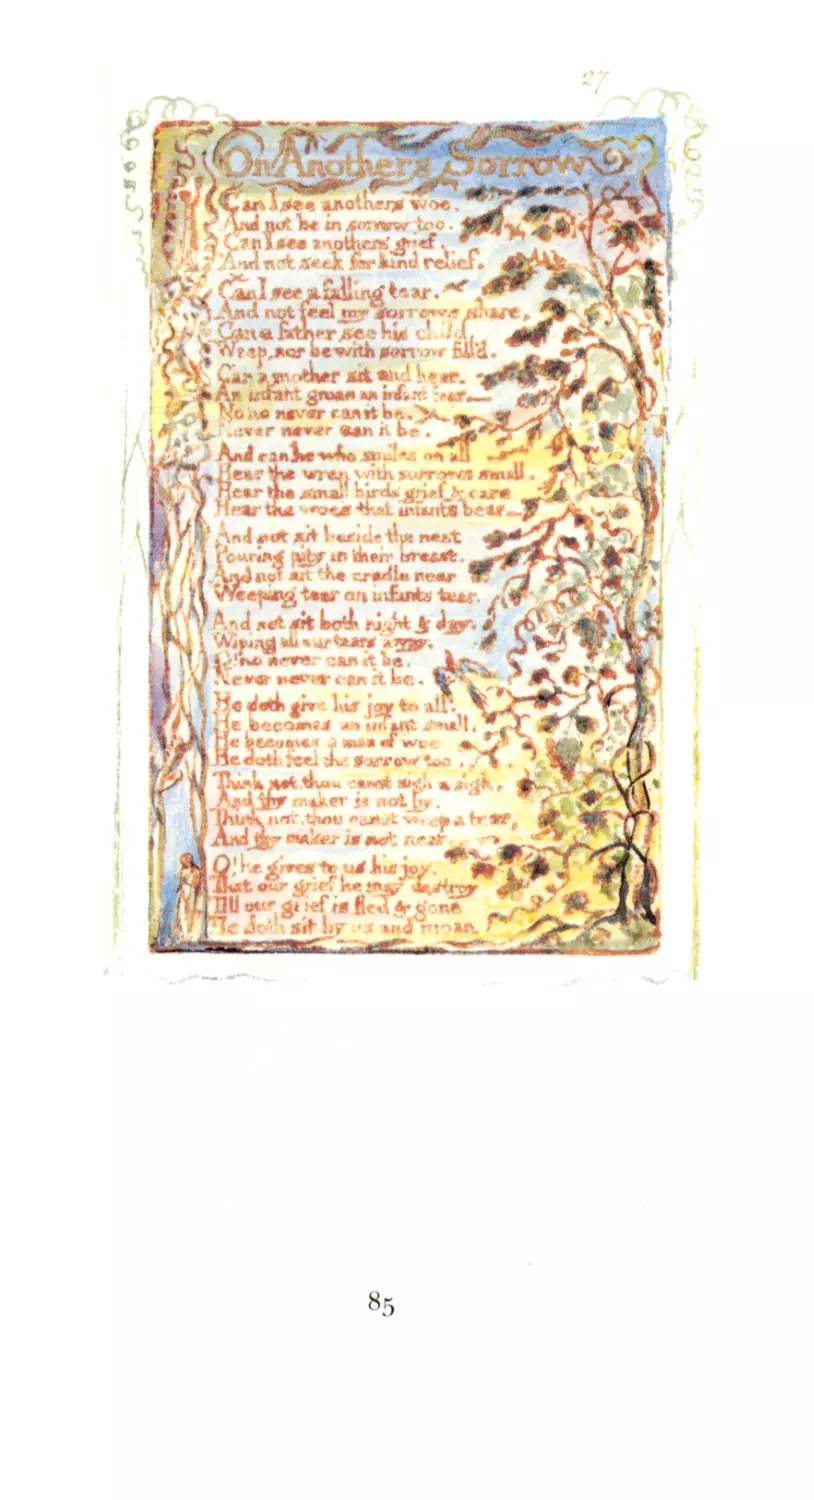 27
On Anothers Sorrow
Can I see anothers woe,
And not be in sorrow too.
Can I see anothers grief,
And not seek for kind relief.
Can I see a falling tear,
And not feel my sorrows share,
Can a father see his child,
Weep, nor be with sorrow fill'd.
Can a mother sit and hear,
An infant groan an infant fear—
No no never can it be,
Never never can it be.
And can he who smiles on all
Hear the wren with sorrows small,
Hear the small birds grief & care
Hear the woes that infants bear—
And not sit beside the nest
Pouring pity in their breast,
And not sit the cradle near
Weeping tear on infants tear.
And not sit both night & day,
Wiping all our tears away,
O! no never can it be,
Never never can it be.
He doth give his joy to all,
He becomes an infant small,
He becomes a man of woe
He doth feel the sorrow too.
Think not, thou canst sigh a sigh,
And thy maker is not by.
Think not, thou canst weep a tear,
And thy maker is not near.
O! he gives to us his joy,
That our grief he may destroy
Till our grief is fled & gone
He doth sit by us and moan
85